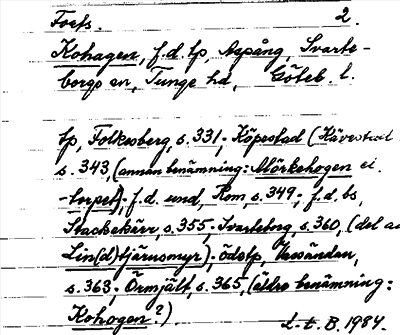 Forts. 2.
Kohagen, f.d. lp, Aspång, Svarte-
borgs sn, Tunge hd, Göteb. l.
lp, Folkesberg, s. 331; Köpestad (Hävestad
s. 343, (annan benämning: Mörkehogen el.
-torpet); f.d. und, Rom, s. 349; f.d. bs,
Stackekärr, s. 355; Svarteborg, s. 360, (del av
Lin(d)tjärnsmyr); ödetp, Vassändan,
s. 363; Örmjält, s. 365, (äldre benämning:
Kohogen?). L-t B. 1984.